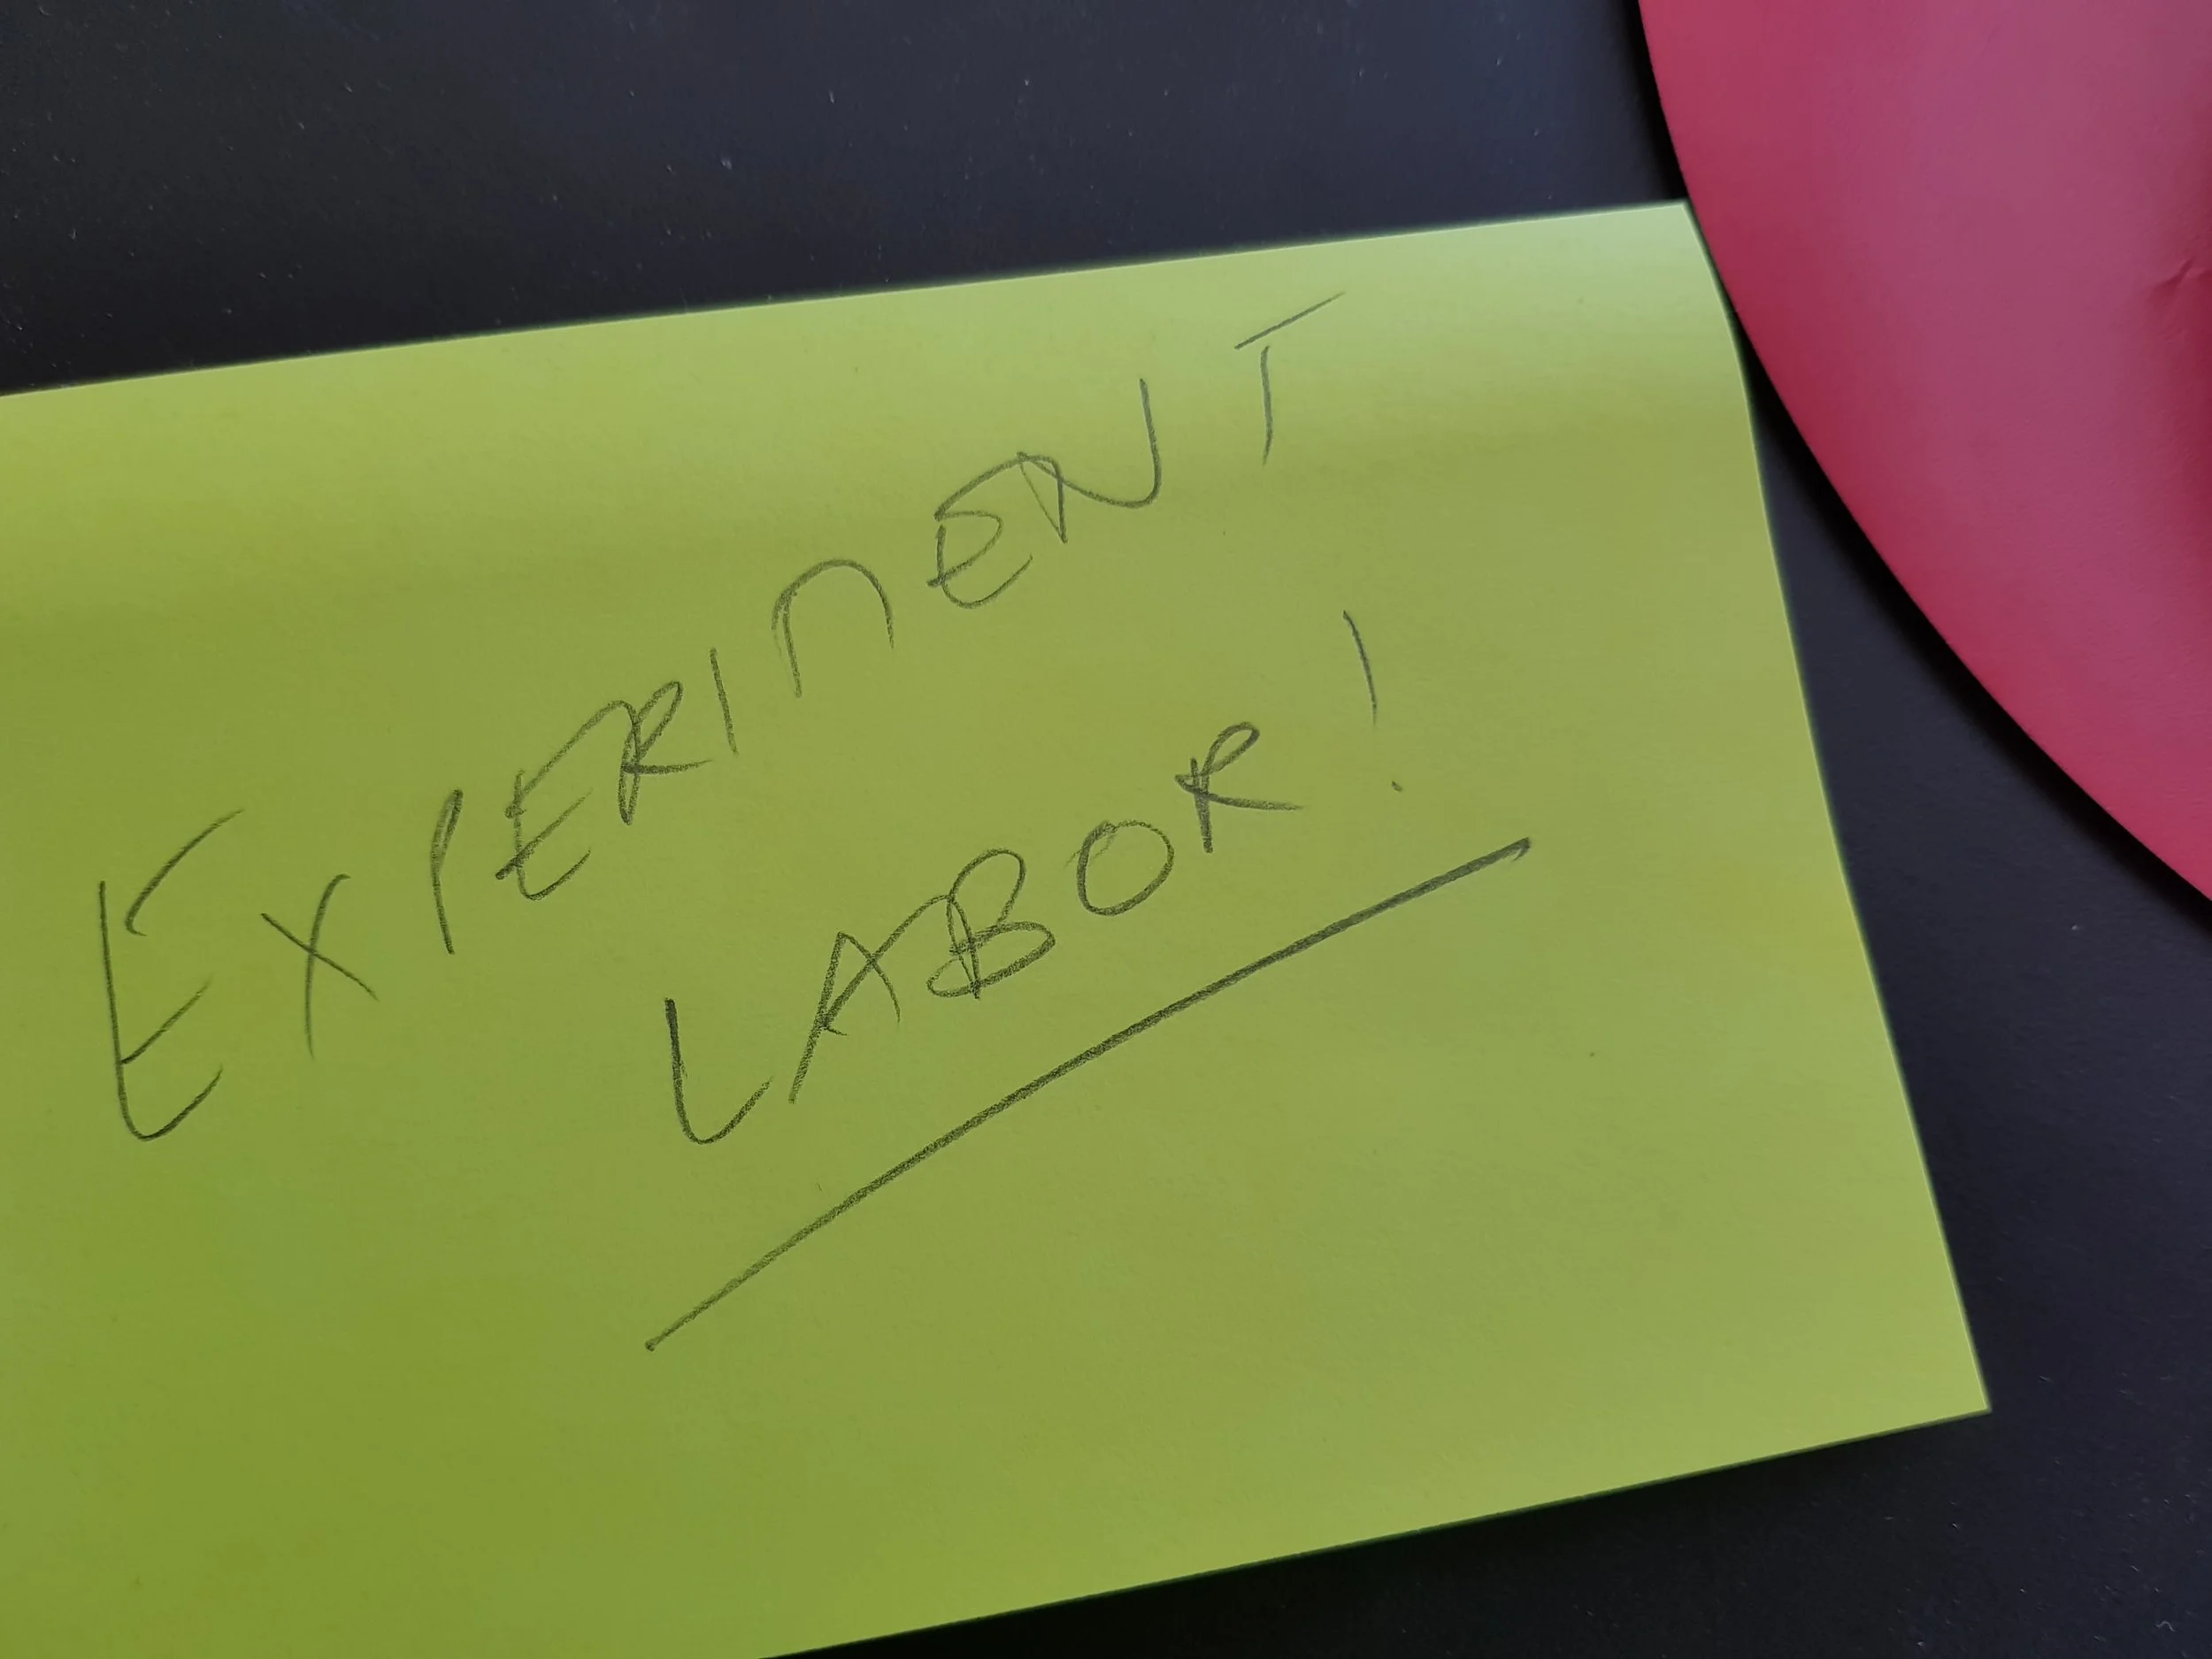 EXPERIMENT
LABOR!